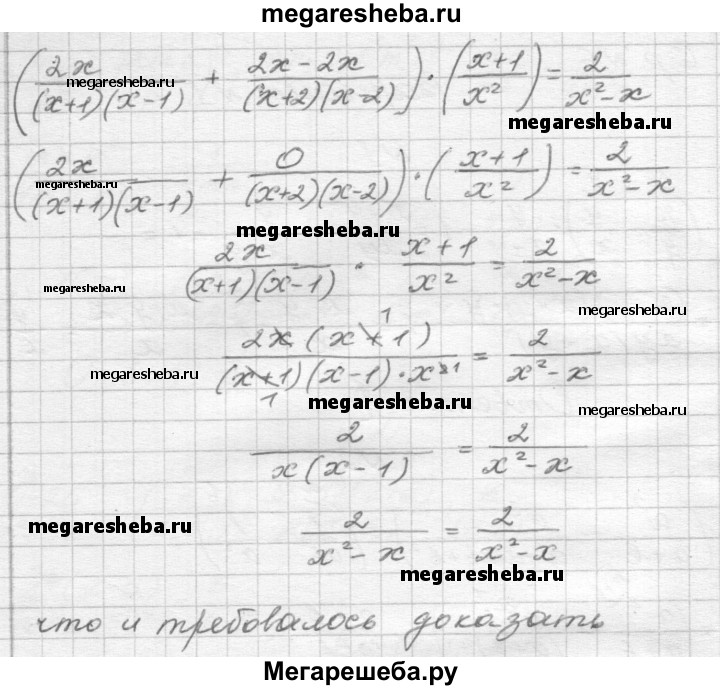 megaresheba.ru
(2x/((x+1)(x-1)) + (2x-2x)/((x+2)(x-2))) · ((x+1)/x²) = 2/(x²-x)
megaresheba.ru
megaresheba.ru
(2x/((x+1)(x-1)) + 0/((x+2)(x-2))) · ((x+1)/x²) = 2/(x²-x)
megaresheba.ru
megaresheba.ru
2x/((x+1)(x-1)) · (x+1)/x² = 2/(x²-x)
megaresheba.ru
megaresheba.ru
1
2x(x+1)/((x+1)(x-1)·x²) = 2/(x²-x)
1
1
megaresheba.ru
megaresheba.ru
megaresheba.ru
2/(x(x-1)) = 2/(x²-x)
megaresheba.ru
2/(x²-x) = 2/(x²-x)
megaresheba.ru
что и требовалось доказать
Мегарешеба.ру